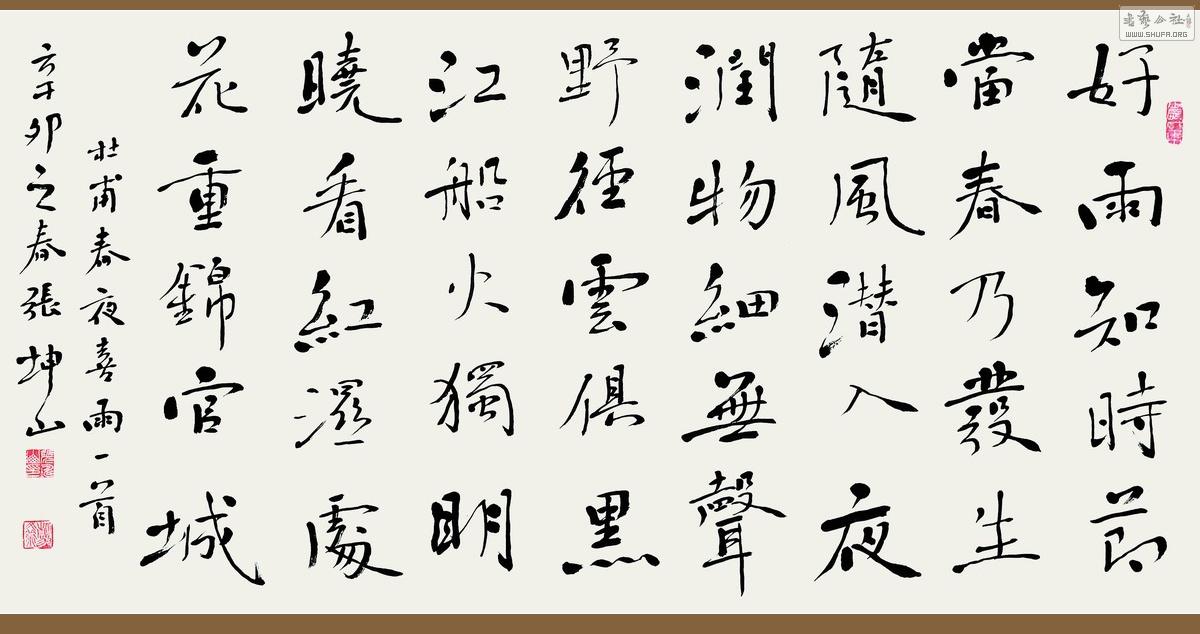 好雨知時節
當春乃發生
隨風潛入夜
潤物細無聲
野徑雲俱黑
江船火獨明
曉看紅濕處
花重錦官城
杜甫春夜喜雨一首
辛卯之春張坤山
WWW.SHUFA.ORG